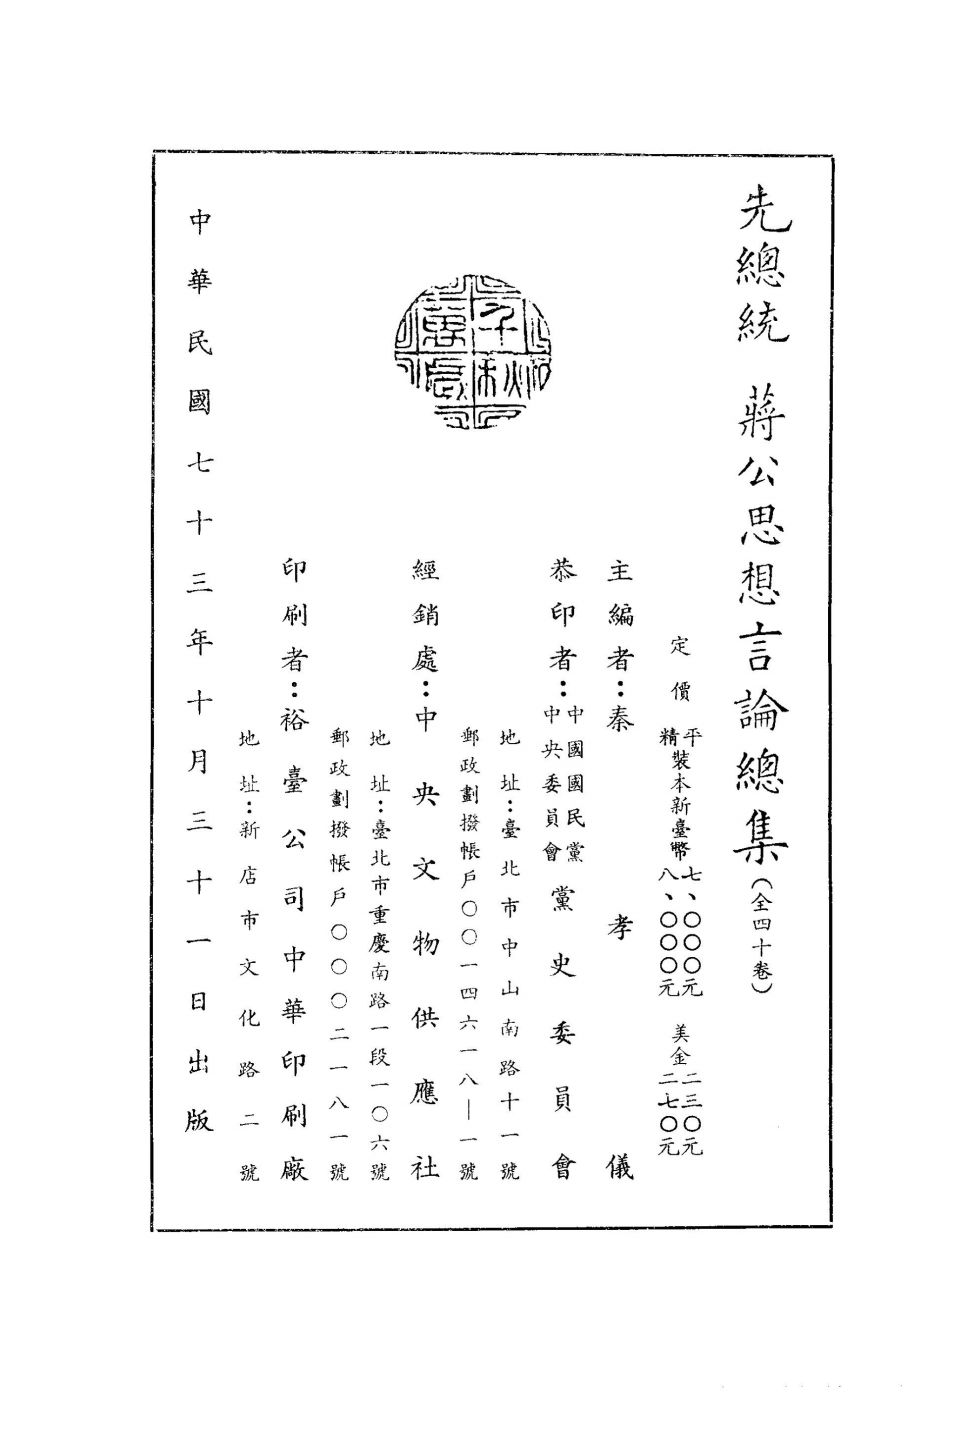 先總統　蔣公思想言論總集（全四十卷）
定價　平裝本新臺幣七、〇〇〇元　美金二三〇元
精裝本新臺幣八、〇〇〇元　美金二七〇元
主編者：秦孝儀
恭印者：中國國民黨中央委員會黨史委員會
地址：臺北市中山南路十一號
郵政劃撥帳戶〇〇一四六一八—一號
經銷處：中央文物供應社
地址：臺北市重慶南路一段一〇六號
郵政劃撥帳戶〇〇〇二一八一號
印刷者：裕臺公司中華印刷廠
地址：新店市文化路二號
中華民國七十三年十月三十一日出版
千秋萬歲